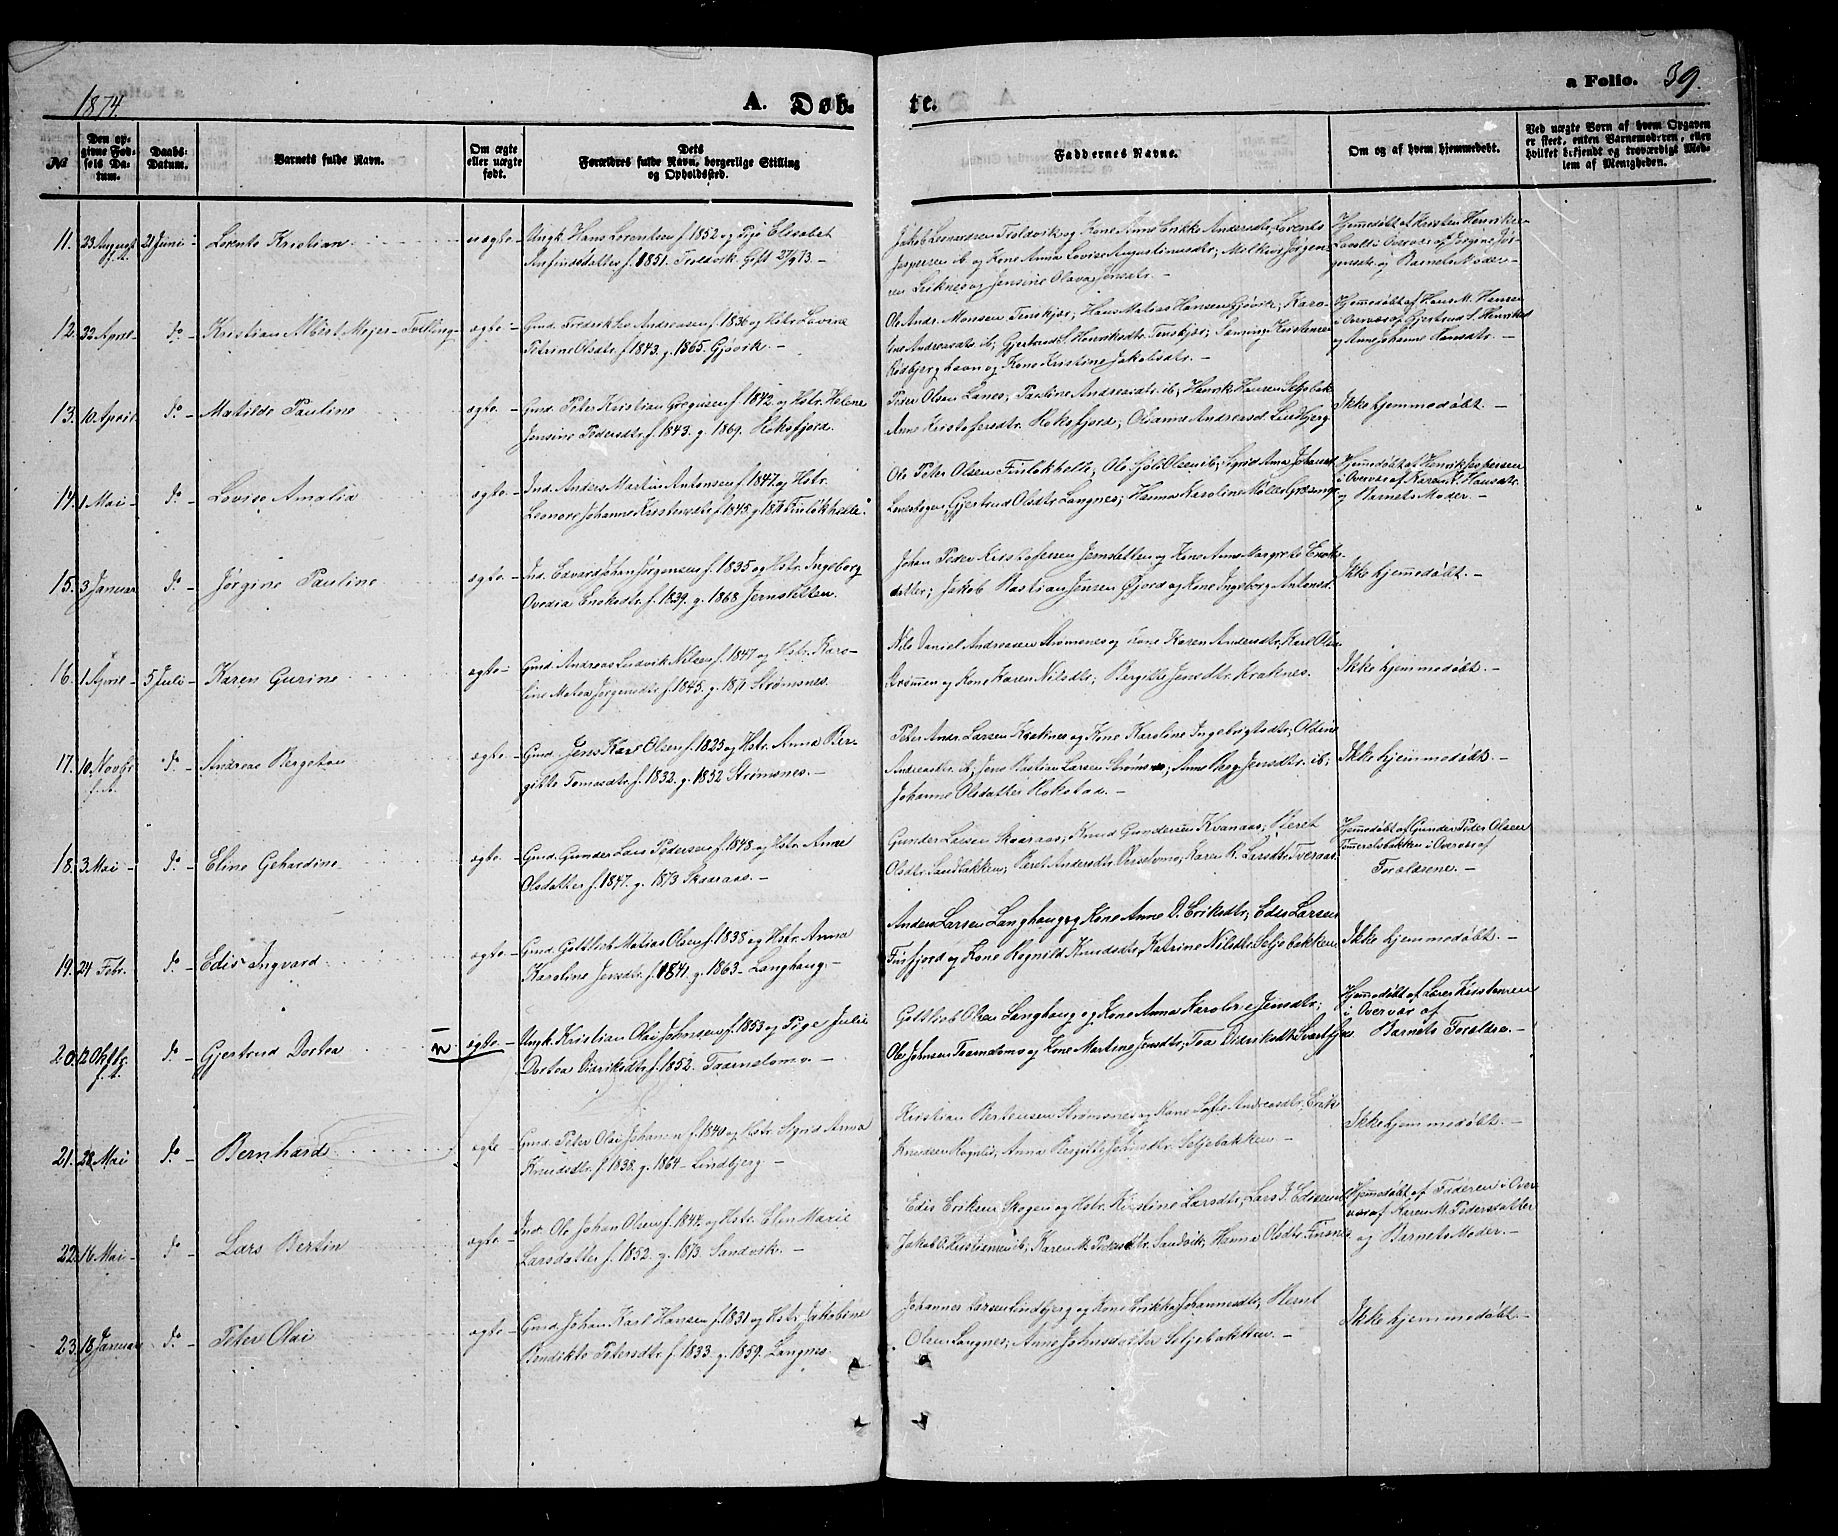 1874.
A. Døb-
te.
a Folio. 39.
No
Den opgivne Fødsels Datum.
Daabs-Datum.
Barnets fulde Navn.
Om ægte eller uægte født.
Dets Forældres fulde Navn, borgerlige Stilling og Opholdssted.
Faddernes Navne.
Om og af hvem hjemmedøbt.
Ved uægte Børn af hvem Opgaven er skeet, enten Barnemoderen, eller hvilket bekjendt og troværdigt Medlem af Menigheden.
11. 23 August f.A. 21 Juni Lorents Kristian uægte
Ungk. Hans Lorentsen f. 1852 og Pige Elisabet
Anfindsdatter f. 1851. Troldvik. Gift 27/9 73 –
Jakob Leonardsen Troldvik og Kone Anne Erikke Andersdtr, Lorents
Jespersen ib og Kone Anna Lovise Augustinusdtr; Melkior Jørgen-
sen Leiknes og Jensine Olava Jensdtr. –
Hjemmedøbt af Kristen Henriksen
i Overvær af Jørgine Jør-
gensdtr. og Barnets Moder –
12. 22 April do Kristian Albert Mejer – Tvilling ægte
Gmd. Fredrik Andreasen f. 1836 og Hstr. Lovine
Petrine Olsdtr. f. 1843. g. 1865. Gjøvik –
Ole Andr. Monsen Finskjær; Hans Matias Hansen Gjøvik; Karo-
line Andreasdtr. ib, Gjertrud S. Henriksdtr. Finskjær;
Rødbjerghavn og Kone Kristine Jakobsdtr. –
Hjemmedøbt af Hans M. Hansen
i Overvær af Gjertrud S. Henriksd.
og Anne Johanne Hansdtr. –
13. 10 April do Matilde Pauline ægte
Gmd. Peter Kristian Gregusen f. 1842 og Hstr. Helene
Jensine Pedersdtr. f. 1843. g. 1869. Hoksfjord.
Peder Olsen Lanes; Pauline Andreasdtr. ib; Henrik Hansen Seljebak
Anne Kristofersdtr. Hoksfjord; Olianna Andreasd. Lindbjerg
Ikke hjemmedøbt –
14. 1 Mai do Lovise Amalia ægte
Ind. Anders Martin Antonsen f. 1847 og Hstr.
Leonore Johanne Kristensdtr f. 1845. g. 18 Finlokhelle
Ole Peter Olsen Finlokhelle; Ole Olsen ib;
Gjertrud Olsdtr. Langnes; Hanna Karoline
Hjemmedøbt af Henrik Jespersen
i Overvær af Karen Hansdtr.
og Barnets Moder –
15. 3 Januar do Jørgine Pauline ægte
Ind. Edvard Johan Jørgensen f. 1835 og Hstr. Ingeborg
Ovedia Enoksdtr. f. 1839. g. 1868 Jernsletten
Johan Peder Kristofersen Jernsletten og Kone Anne Margrete Enoks-
datter; Jakob Bastian Jensen Øjord og Kone Ingeborg Antonsd.
Ikke hjemmedøbt. –
16. 1 April 5 Juli Karen Gurine ægte
Gmd. Andreas Ludvik Nilsen f. 1847 og Hstr. Karo-
line Matea Jørgensdtr. f. 1845. g. 1871 Strømsnes.
Nils Daniel Andreassen Strømsnes og Kone Karen Andersdtr, Karl Olsen
Strømmen og Kone Karen Nilsdtr; Bergitte Jensdtr. Kraknes.
Ikke hjemmedøbt. –
17. 10 Novbr f.A. do Andreas Bergeton ægte
Gmd. Jens Karl Olsen f. 1825 og Hstr. Anna Ber-
gitte Tomasdtr. f. 1832. g. 1852 Strømsnes. –
Peter Andr. Larsen Kraknes og Kone Karoline Ingebrigtsdtr; Oldine
Andreasdtr. ib, Jens Bastian Larsen Strømsnes; Anne Berg. Jensdtr. ib;
Johanne Olsdatter Hokstad –
Ikke hjemmedøbt –
18. 3 Mai do Eline Gehardine ægte
Gmd. Gunder Lars Pedersen f. 1848 og Hstr. Anne
Olsdatter f. 1847. g. 1873 Skaaraas. –
Gunder Larsen Skaaraas; Knud Gundersen Kvanaas; Beret
Olsdtr. Sandbakken; Beret Andersdtr. Karen K. Larsdtr. Tveraas
Hjemmedøbt af Gunder Peder Olsen
Tømmeraasbakken i Overvær af
Forældrene. –
19. 24 Febr. do Edis Ingvard ægte
Gmd. Gottlieb Matias Olsen f. 1838 og Hstr. Anna
Karoline Jensdtr. f. 1841. g. 1863 – Langhaug –
Anders Larsen Langhaug og Kone Anne D. Eriksdtr; Edis Larsen
Finfjord og Kone Rognild Knudsdtr, Katrine Nilsdtr Seljebakken
Ikke hjemmedøbt. –
20. 12 Oktbr. f.A. do Gjertrud Dortea u ægte
Ungk. Kristian Olai Johnsen f. 1853 og Pige Julie
Dortea Didriksdtr. f. 1852. Taarnelomo –
Gottlieb Olsen Langhaug og Kone Anna Karoline Jensdtr;
Ole Johnsen Taarnelomo og Kone Martine Jensdtr; Toa Didriksdtr
Hjemmedøbt af Lærer Kristensen
i Overvær af
Barnets Forældre –
21. 28 Mai do Bernhard ægte
Gmd. Peter Olai Johansen f. 1840 og Hstr. Sigrid Anna
Knudsdtr. f. 1838. g. 1864 – Lindbjerg –
Kristian Bertensen Strømsnes og Kone Sofie Andreasdtr, Erik
Knudsen Rognlid, Anna Bergitte Jensdtr. Seljebakken –
Ikke hjemmedøbt. –
22. 16 Mai do Lars Bertin ægte
Ind. Ole Johan Olsen f. 1844 og Hstr. Elen Marie
Larsdatter f. 1852. g. 1873 Sandvik. –
Edis Eriksen Skogen og Hstr. Kirstine Larsdtr; Lars J. Edissen ib
Jakob O. Kristiansen ib, Karen M. Pedersdtr. Sandvik, Hanna Olsdtr. Finsnes
Hjemmedøbt af Faderen i Over-
vær af Karen M. Pedersdatter
og Barnets Moder. –
23. 18 Januar do Peter Olai ægte
Gmd. Johan Karl Hansen f. 1831 og Hstr. Jakobine
Bendikte Petersdtr. f. 1833. g. 1859. Langnes
Johannes Larsen Lindbjerg og Kone Erikka Johannesdtr, Bernt
Olsen Langnes; Anne Johnsdatter Seljebakken –
Ikke hjemmedøbt –